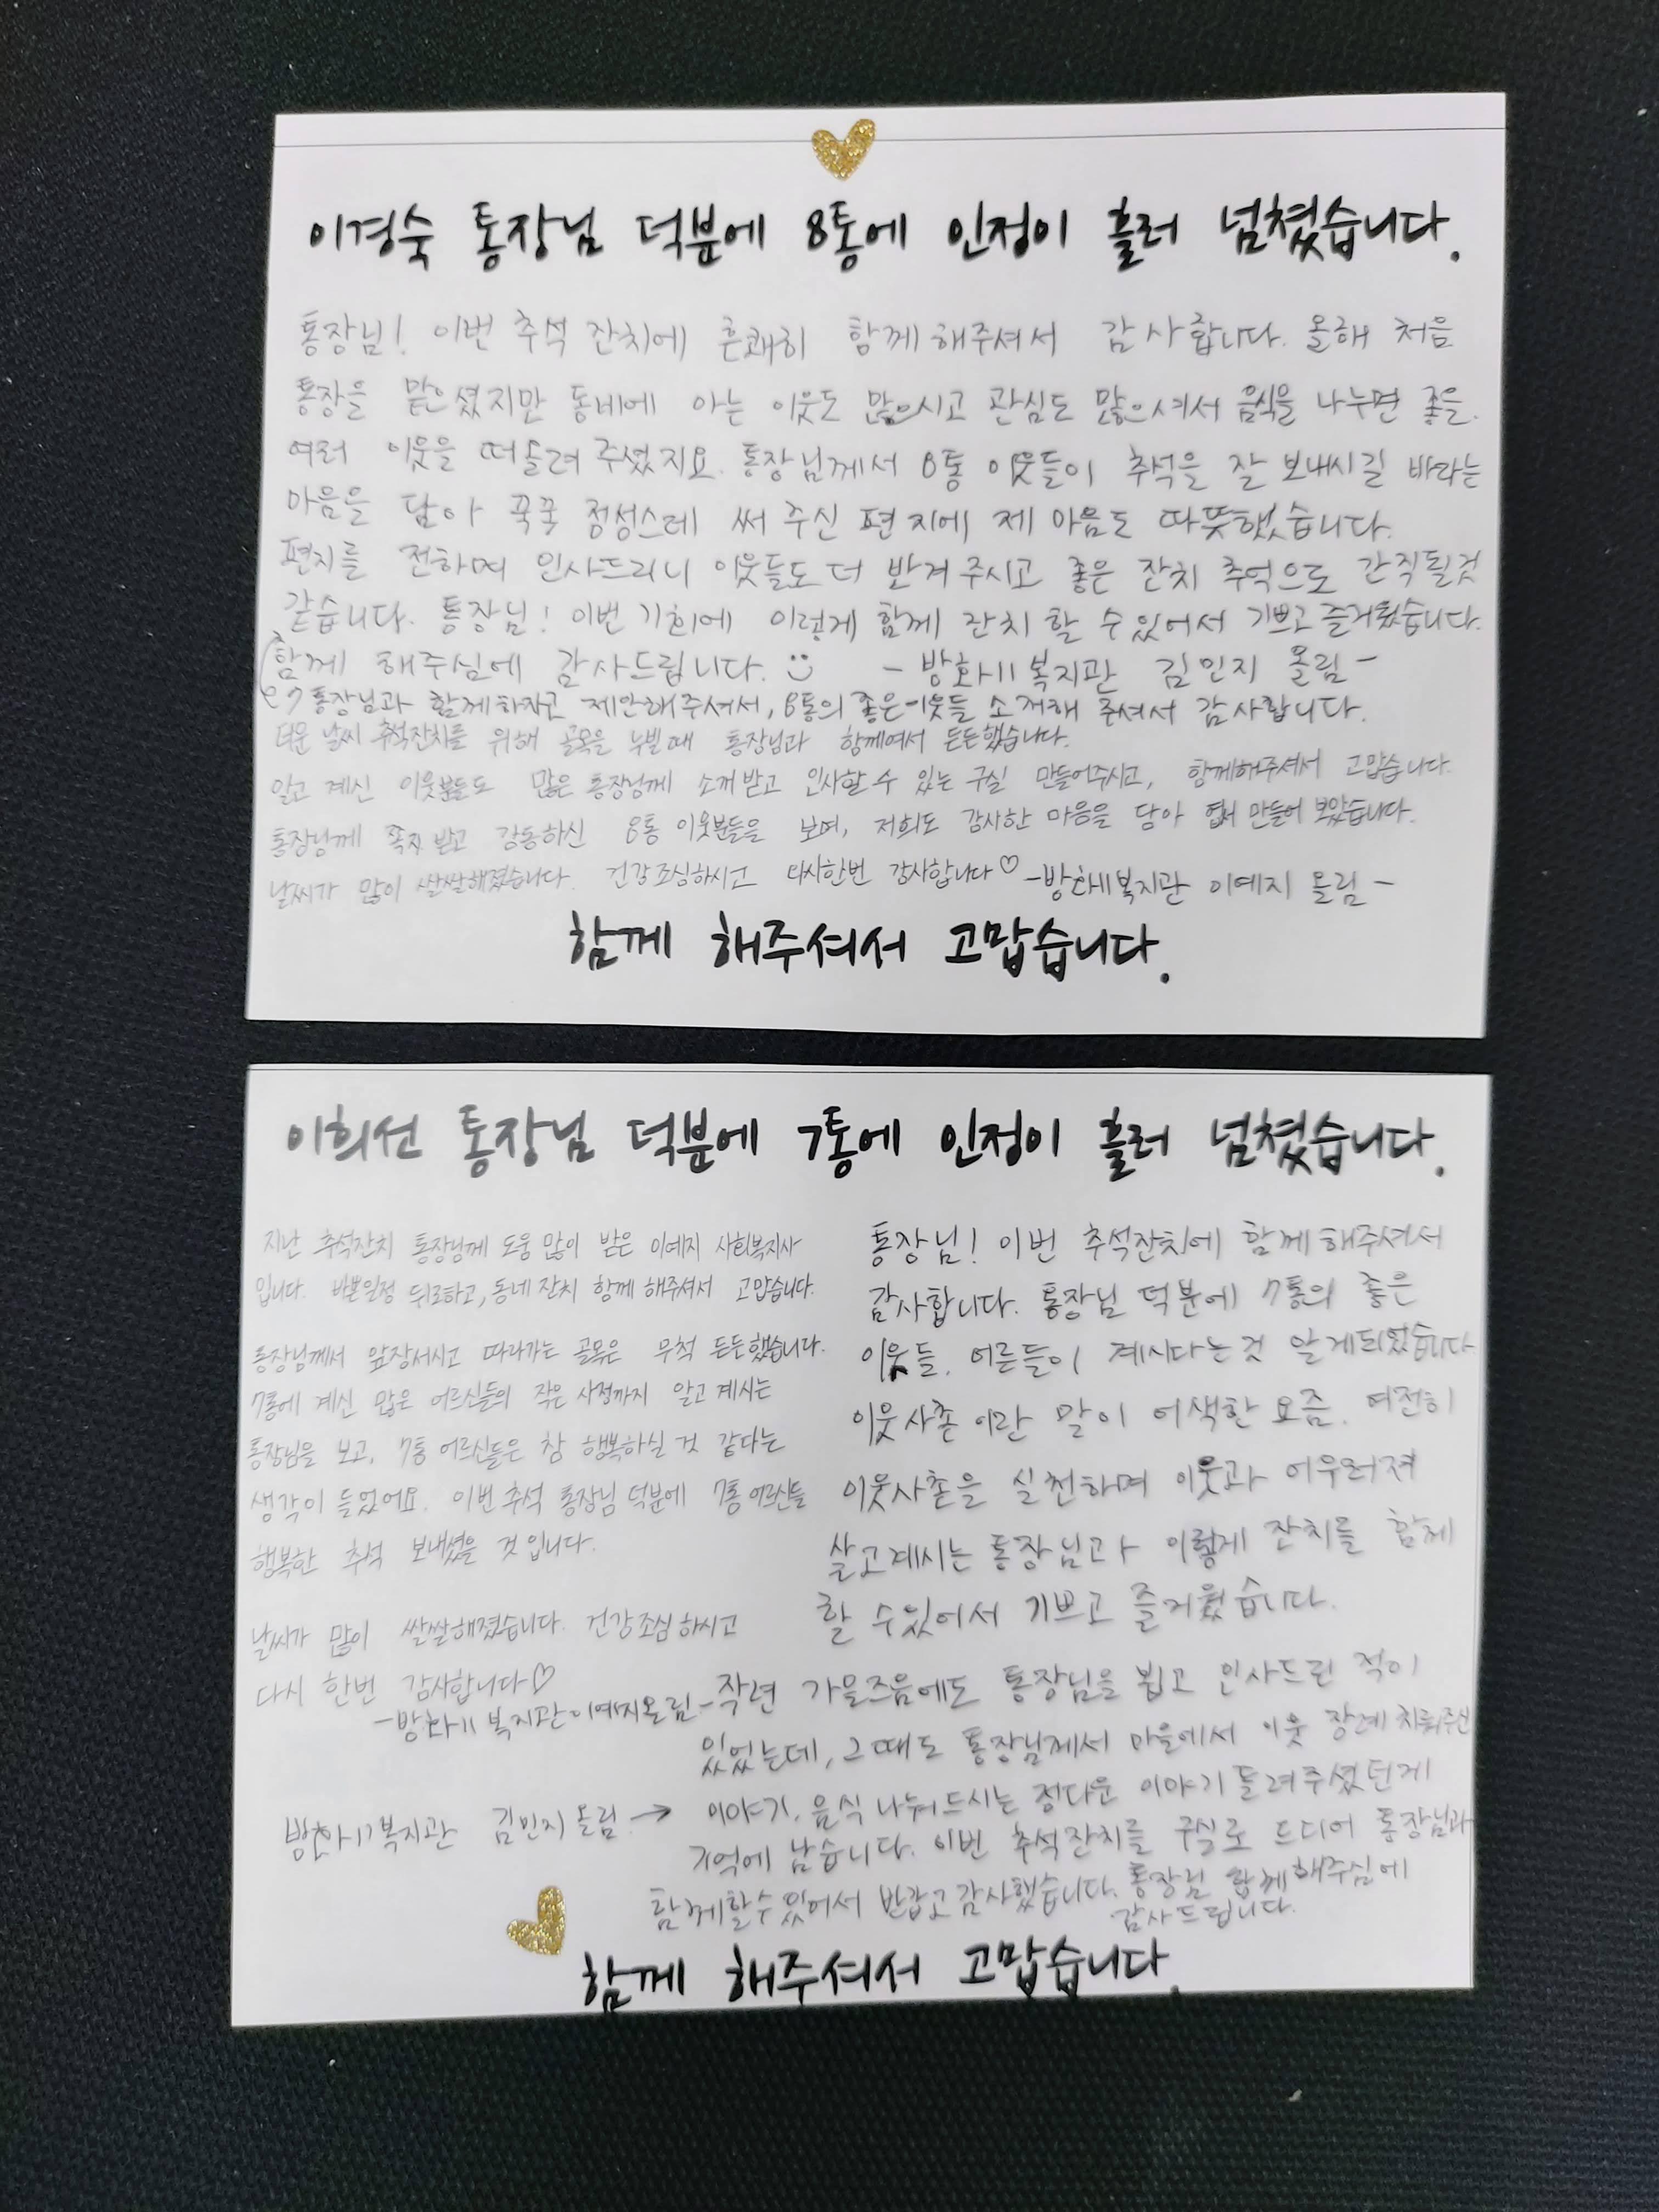 이경숙 통장님 덕분에 8통에 인정이 흘러 넘쳤습니다.
통장님! 이번 추석 잔치에 흔쾌히 함께 해주셔서 감사합니다. 올해 처음
통장을 맡으셨지만 동네에 아는 이웃도 많으시고 관심도 많으셔서 음식을 나누면 좋을
여러 이웃을 떠올려 주셨지요. 통장님께서 8통 이웃들이 추석을 잘 보내시길 바라는
마음을 담아 꾹꾹 정성스레 써 주신 편지에 제 마음도 따뜻했습니다.
편지를 전하며 인사드리니 이웃들도 더 반겨 주시고 좋은 잔치 추억으로 간직될것
같습니다. 통장님! 이번 기회에 이렇게 함께 잔치 할 수 있어서 기쁘고 즐거웠습니다.
함께 해주심에 감사드립니다. - 방화11복지관 김민지 올림 -
7통장님과 함께하자고 제안해주셔서, 8통의 좋은 이웃들 소개해 주셔서 감사합니다.
더운 날씨 추석잔치를 위해 골목을 누빌때 통장님과 함께여서 든든했습니다.
알고 계신 이웃분들도 많은 통장님께 소개 받고 인사할 수 있는 구실 만들어주시고, 함께해주셔서 고맙습니다.
통장님께 쪽지 받고 감동하신 8통 이웃분들을 보며, 저희도 감사한 마음을 담아 엽서 만들어 보았습니다.
날씨가 많이 쌀쌀해졌습니다. 건강조심하시고 다시한번 감사합니다♡ -방화11복지관 이예지 올림-
함께 해주셔서 고맙습니다.
이희선 통장님 덕분에 7통에 인정이 흘러 넘쳤습니다.
지난 추석잔치 통장님께 도움 많이 받은 이예지 사회복지사
입니다. 바쁜일정 뒤로하고, 동네 잔치 함께 해주셔서 고맙습니다.
통장님께서 앞장서시고 따라가는 골목은 무척 든든했습니다.
7통에 계신 많은 어르신들의 작은 사정까지 알고 계시는
통장님을 보고, 7통 어르신들은 참 행복하실 것 같다는
생각이 들었어요. 이번 추석 통장님 덕분에 7통 어르신들
행복한 추석 보내셨을 것 입니다.
날씨가 많이 쌀쌀해졌습니다. 건강조심하시고
다시 한번 감사합니다♡
-방화11복지관 이예지올림-
통장님! 이번 추석잔치에 함께 해주셔서
감사합니다. 통장님 덕분에 7통의 좋은
이웃들, 어른들이 계시다는것 알게되었습니다
이웃사촌 이란 말이 어색한 요즘, 여전히
이웃사촌을 실천하며 이웃과 어우러져
살고계시는 통장님과 이렇게 잔치를 함께
할 수있어서 기쁘고 즐거웠습니다.
작년 가을즈음에도 통장님을 뵙고 인사드린 적이
있었는데, 그때도 통장님께서 마을에서 이웃 장례 치뤄주신
이야기, 음식 나눠드시는 정다운 이야기 들려주셨던게
기억에 남습니다. 이번 추석잔치를 구실로 드디어 통장님과
함께할수있어서 반갑고 감사했습니다. 통장님 함께해주심에
감사드립니다.
방화11복지관 김민지올림. →
함께 해주셔서 고맙습니다.